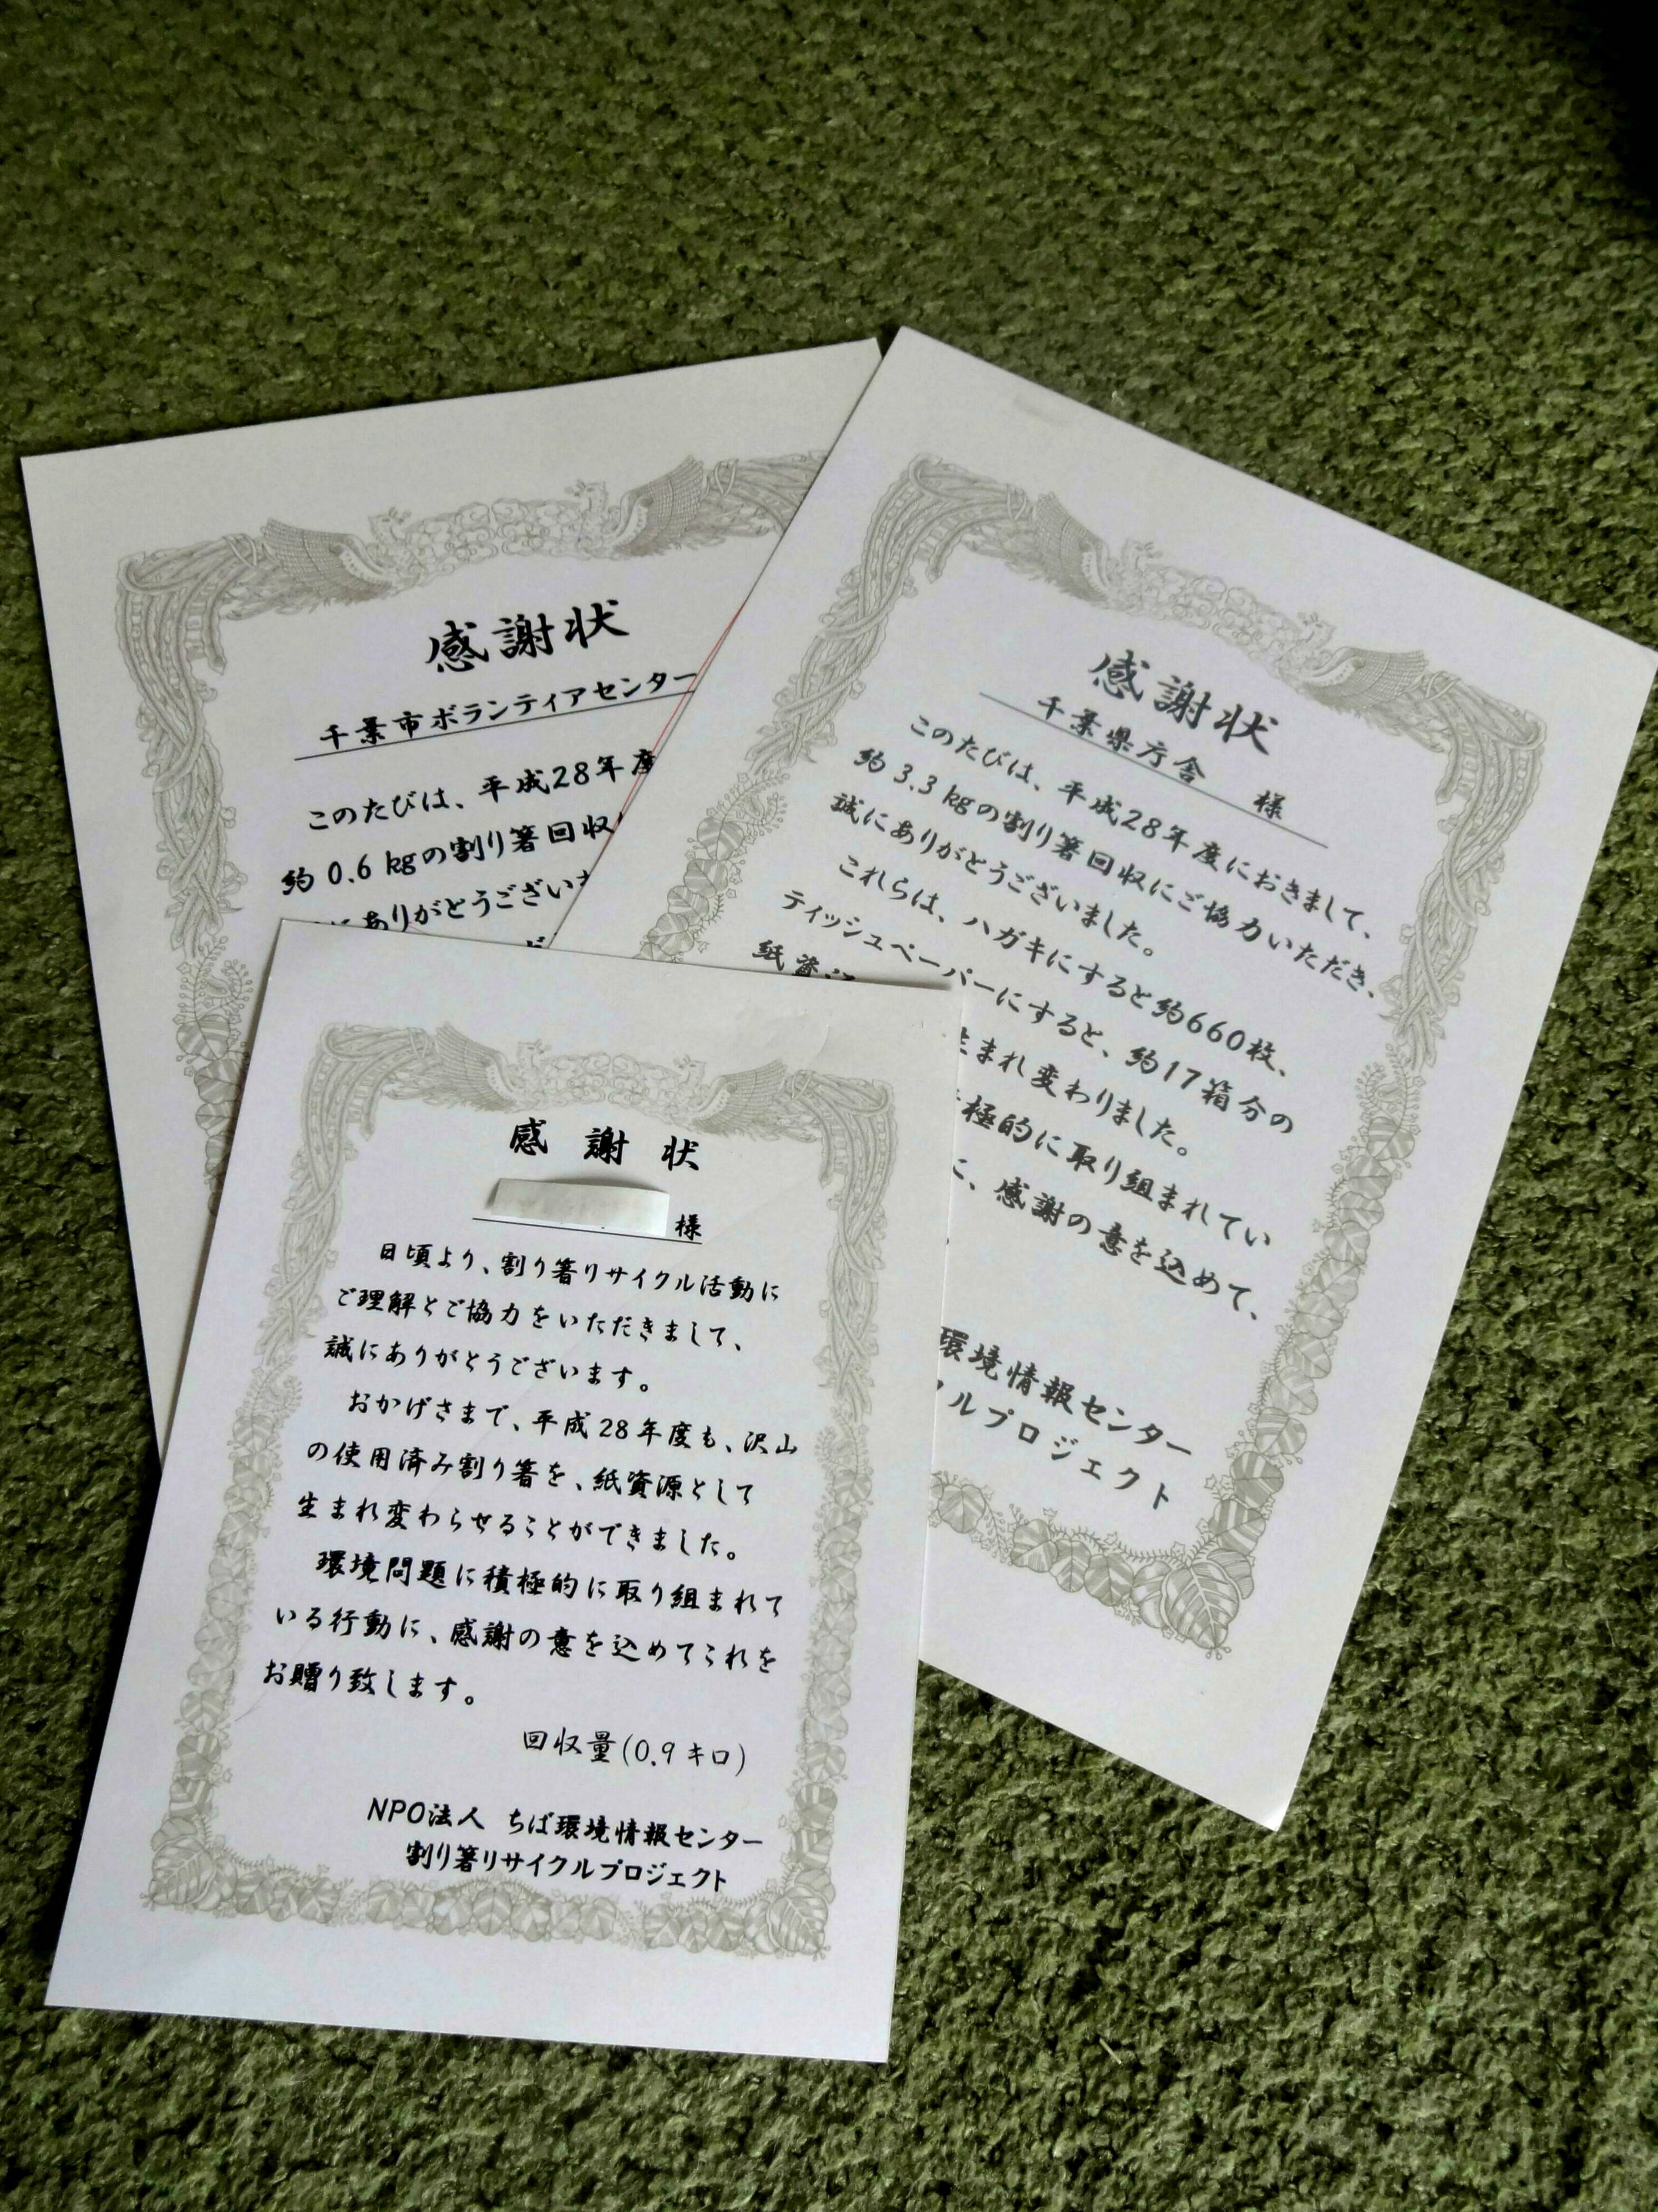 感謝状
千葉市ボランティアセンター
このたびは、平成28年度
約 0.6 kgの割り箸回収
にありがとうござい
感謝状
千葉県庁舎 様
このたびは、平成28年度におきまして、
約 3.3 kgの割り箸回収にご協力いただき、
誠にありがとうございました。
これらは、ハガキにすると約660枚、
ティッシュペーパーにすると、約17箱分の
紙資
生まれ変わりました。
極的に取り組まれてい
に、感謝の意を込めて、
環境情報センター
クルプロジェクト
感謝状
様
日頃より、割り箸リサイクル活動に
ご理解とご協力をいただきまして、
誠にありがとうございます。
おかげさまで、平成28年度も、沢山
の使用済み割り箸を、紙資源として
生まれ変わらせることができました。
環境問題に積極的に取り組まれて
いる行動に、感謝の意を込めてこれを
お贈り致します。
回収量(0.9キロ)
NPO法人 ちば環境情報センター
割り箸リサイクルプロジェクト